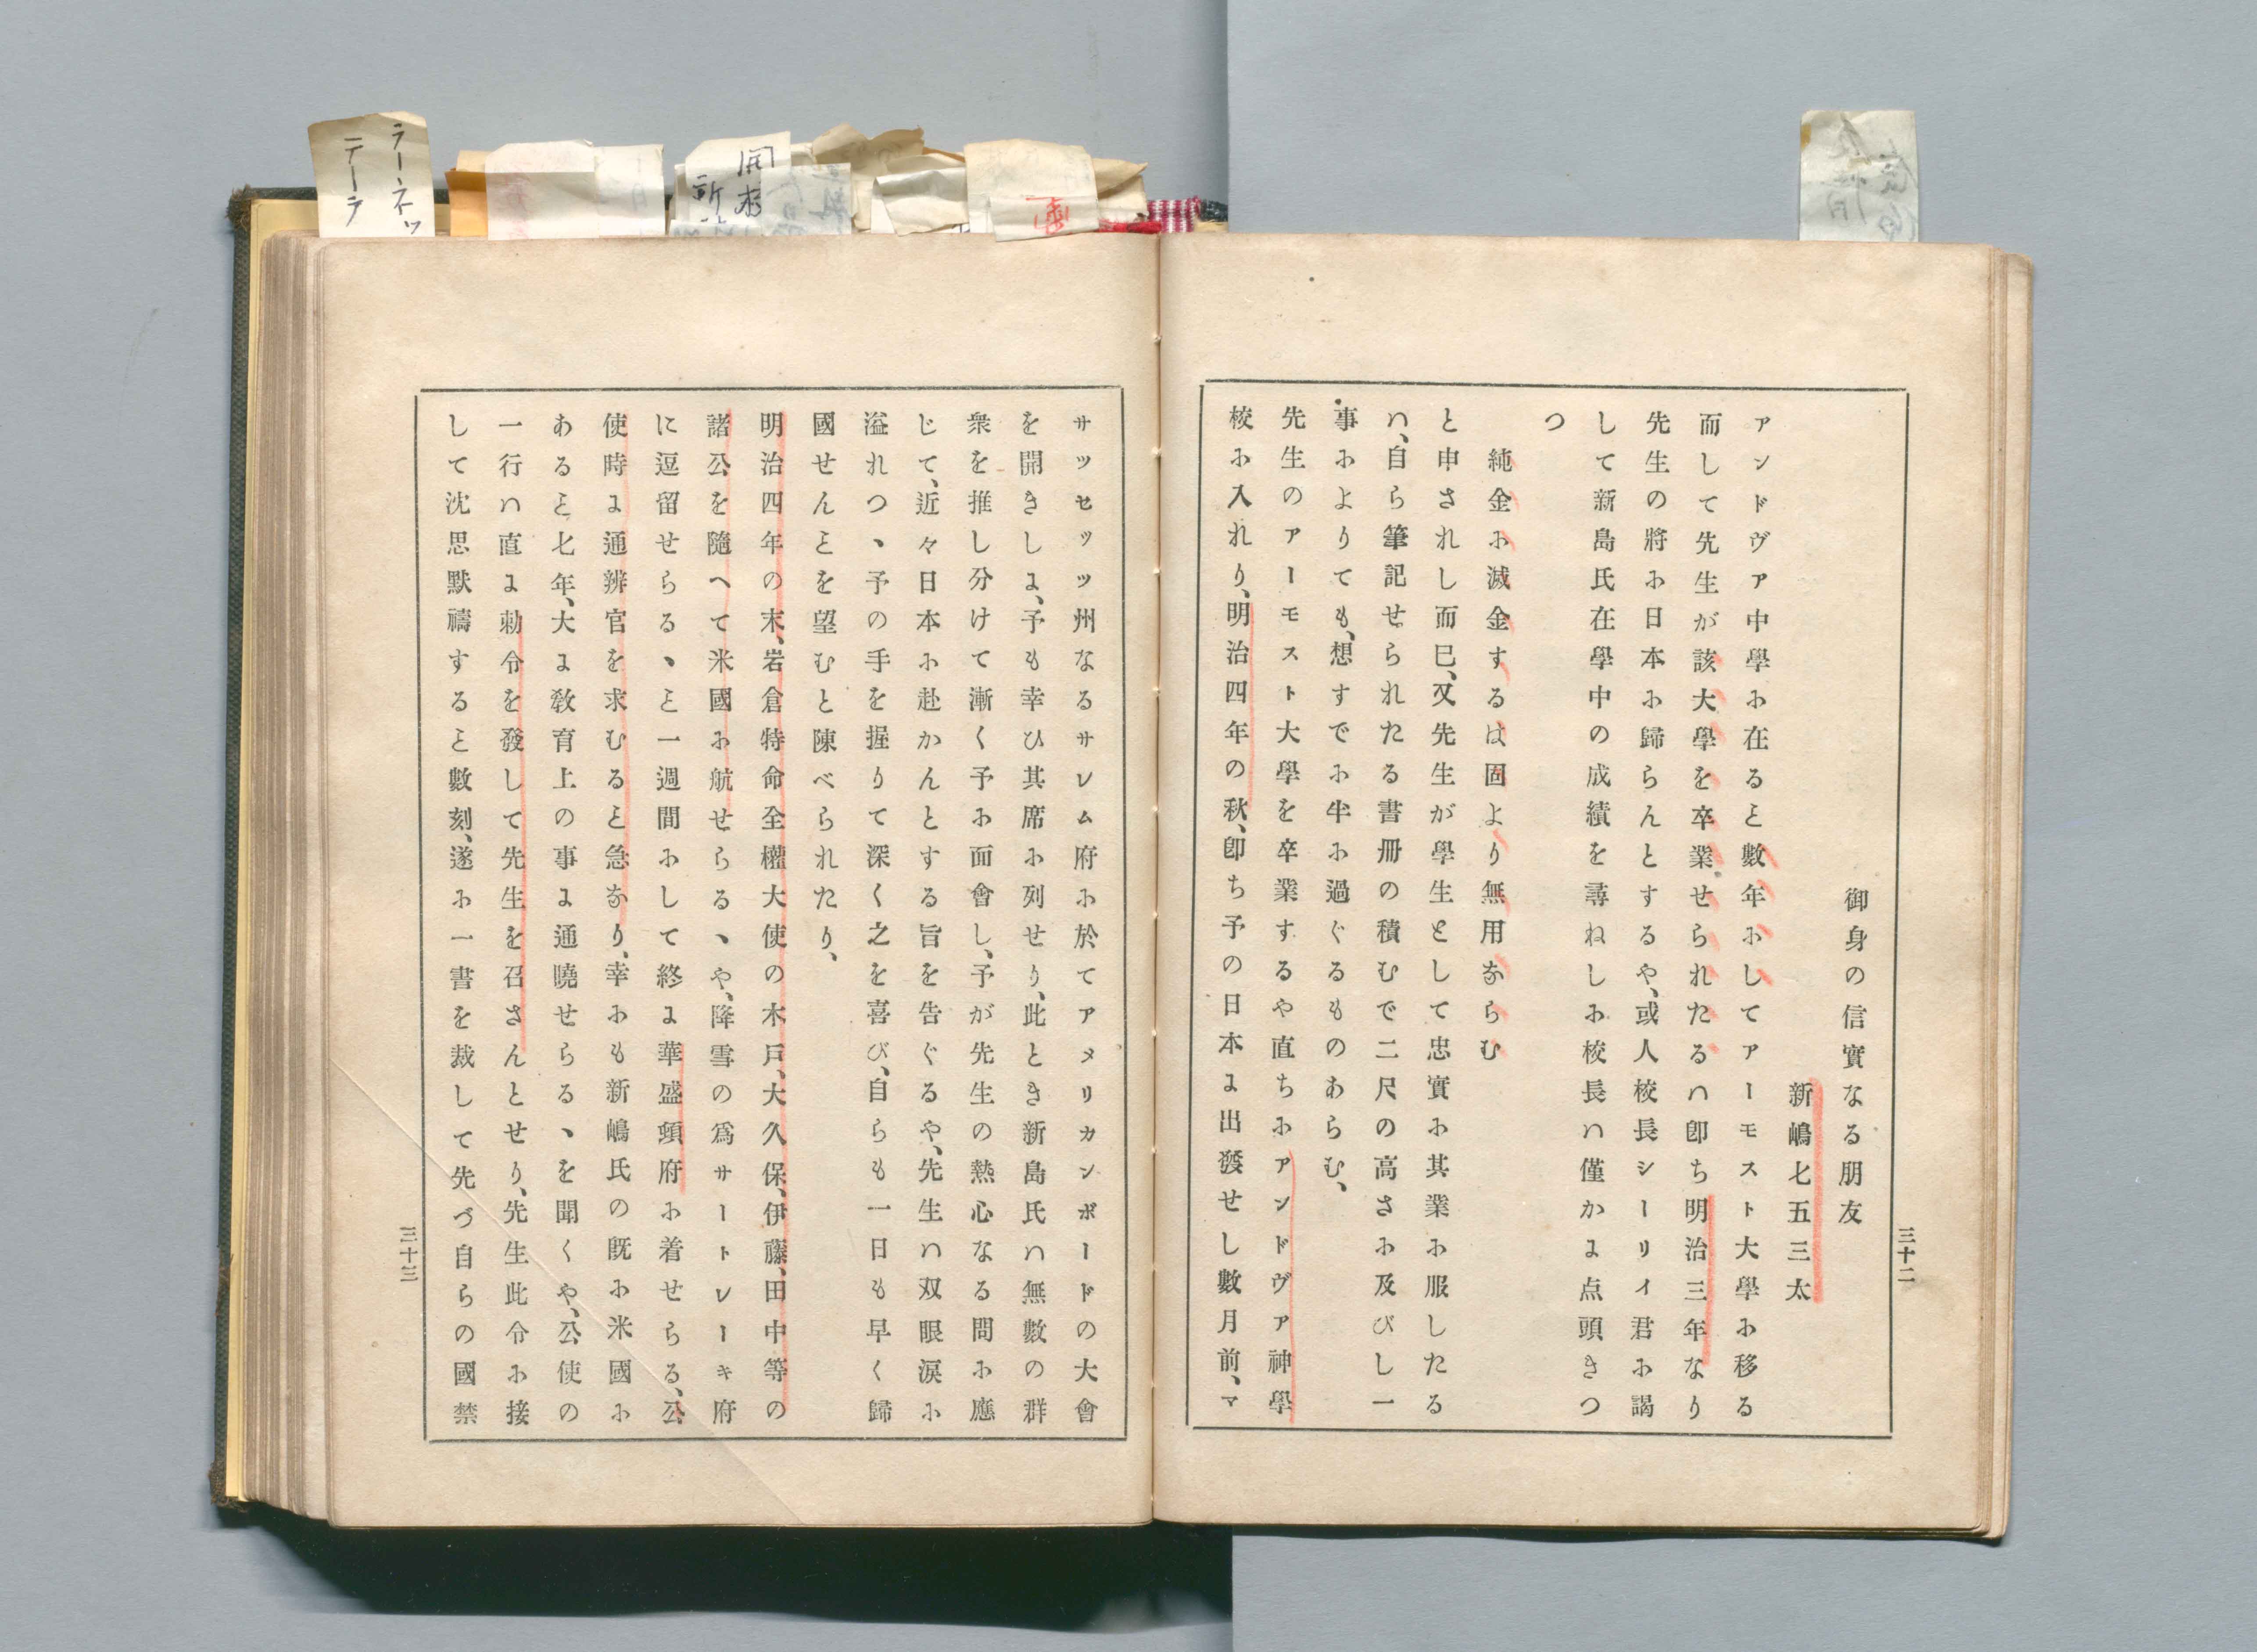 御身の信實なる朋友
新嶋七五三太
アンドヴア中學に在ること數年にしてアーモスト大學に移る
而して先生が該大學を卒業せられたるハ卽ち明治三年なり
先生の將に日本に歸らんとするや、或人校長シーリイ君に謁
して新島氏在學中の成績を尋ねしに校長ハ僅かに点頭きつ
つ
純金に滅金するは固より無用ならむ
と申されし而已、又先生が學生として忠實に其業に服したる
ハ、自ら筆記せられたる書冊の積むで二尺の高さに及びし一
事によりても、想すでに半に過ぐるものあらむ、
先生のアーモスト大學を卒業するや直ちにアンドヴア神學
校に入れり、明治四年の秋、卽ち予の日本に出發せし數月前、マ
三十二
サツセツツ州なるサレム府に於てアメリカンボードの大會
を開きしに、予も幸ひ其席に列せり、此とき新島氏ハ無數の群
衆を推し分けて漸く予に面會し、予が先生の熱心なる問に應
じて、近々日本に赴かんとする旨を告ぐるや、先生ハ双眼涙に
溢れつヽ予の手を握りて深く之を喜び、自らも一日も早く歸
國せんことを望むと陳べられたり、
明治四年の末、岩倉特命全權大使の木戸、大久保、伊藤、田中等の
諸公を隨へて米國に航せらるヽや、降雪の爲サートレーキ府
に逗留せらるヽこと一週間にして終に華盛頓府に着せらる、公
使時に通辨官を求むること急なり、幸にも新嶋氏の既に米國に
あること七年、大に敎育上の事に通曉せらるヽを聞くや、公使の
一行ハ直に勅令を發して先生を召さんとせり、先生此令に接
して沈思默禱すること數刻、遂に一書を裁して先づ自らの國禁
三十三
ラーネツ
テーラ